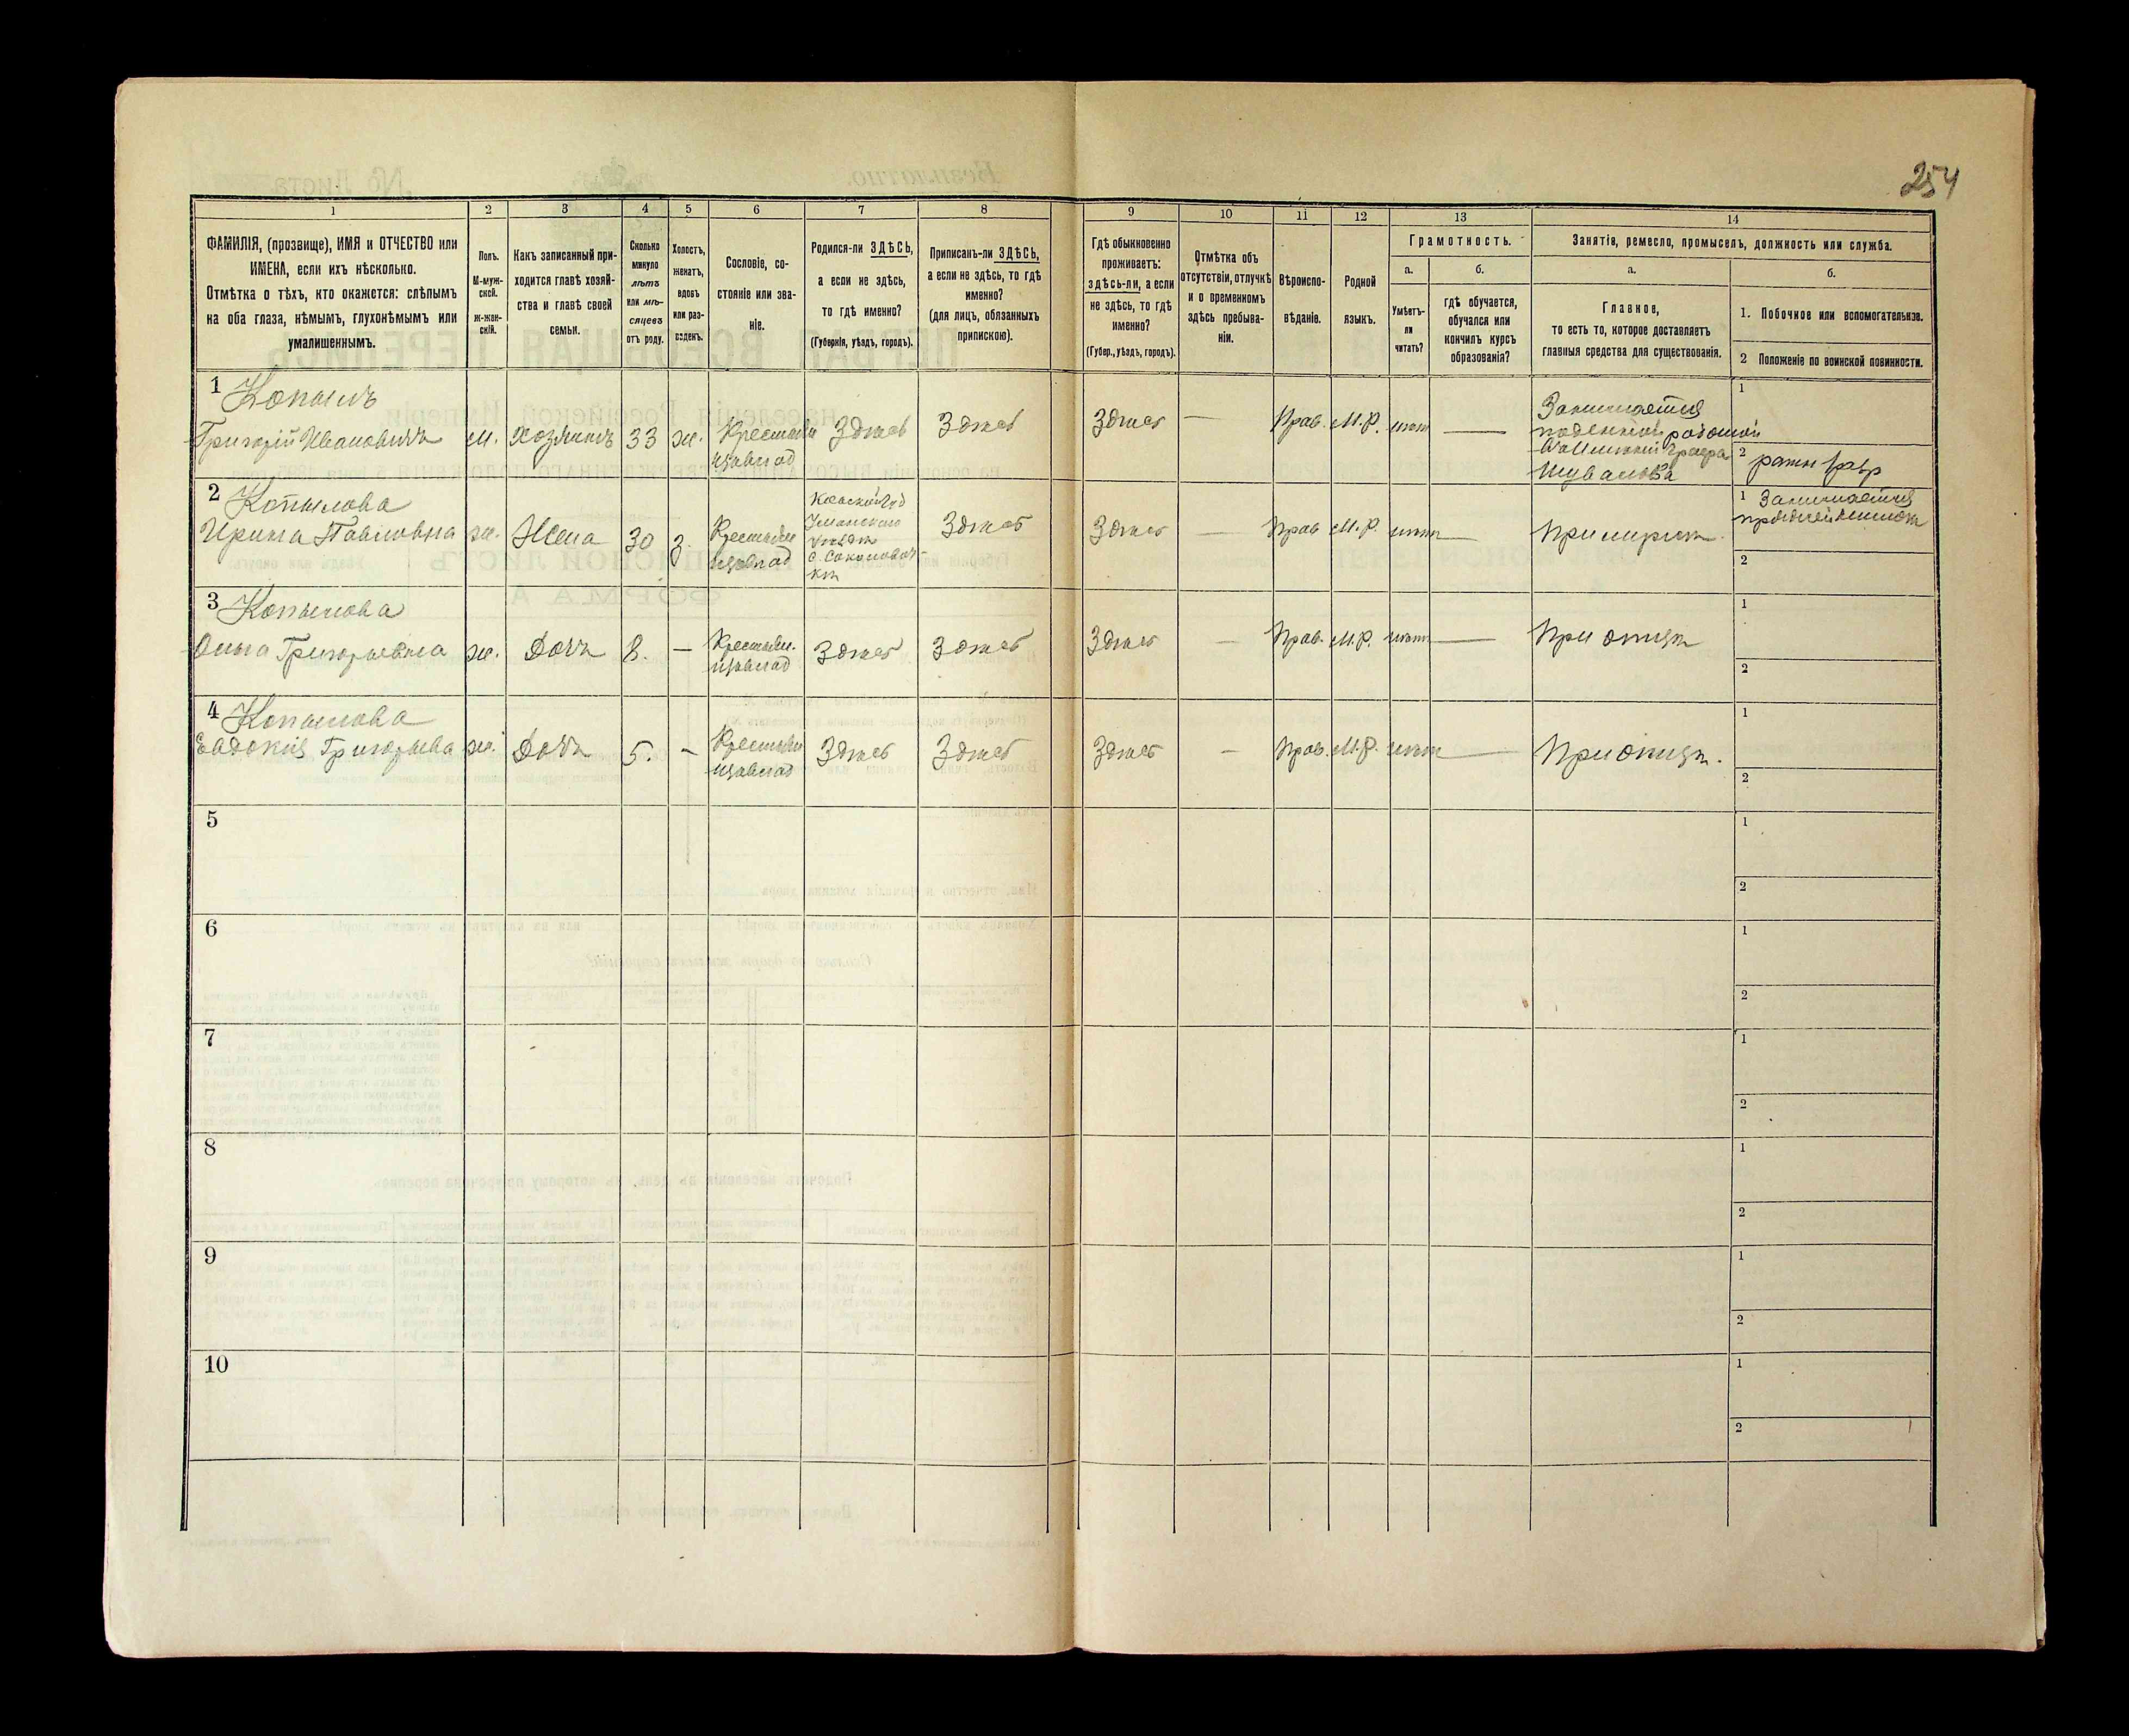 254
1
2
3
4
5
6
7
8
9
10
11
12
13
14
ФАМИЛІЯ, (прозвище), ИМЯ и ОТЧЕСТВО или
ИМЕНА, если ихъ нѣсколько.
Отмѣтка о тѣхъ, кто окажется: слѣпымъ
на оба глаза, нѣмымъ, глухонѣмымъ или
умалишеннымъ.
Полъ.
М-муж-
ской.
Ж-жен-
скій.
Какъ записанный при-
ходится главѣ хозяй-
ства и главѣ своей
семьи.
Сколько
минуло
лѣтъ
или мѣ-
сяцевъ
отъ роду.
Холостъ,
женатъ,
вдовъ
или раз-
веденъ.
Сословіе, со-
стояніе или зва-
ніе.
Родился-ли ЗДѢСЬ,
а если не здѣсь,
то гдѣ именно?
(Губернія, уѣздъ, городъ).
Приписанъ-ли ЗДѢСЬ,
а если не здѣсь, то гдѣ
именно?
(для лицъ, обязанныхъ
припискою).
Гдѣ обыкновенно
проживаетъ:
здѣсь-ли, а если
не здѣсь, то гдѣ
именно?
(Губер., уѣздъ, городъ).
Отмѣтка объ
отсутствіи, отлучкѣ
и о временномъ
здѣсь пребыва-
ніи.
Вѣроиспо-
вѣданіе.
Родной
языкъ.
Грамотность.
а.
Умѣетъ-
ли
читать?
б.
гдѣ обучается,
обучался или
кончилъ курсъ
образованія?
Занятіе, ремесло, промыселъ, должность или служба.
а.
Главное,
то есть то, которое доставляетъ
главныя средства для существованія.
б.
1. Побочное или вспомогательное.
2 Положеніе по воинской повинности.
1 Копылъ
Григорій Ивановичъ
м.
хозяинъ
33
ж.
Крестьян
изъ влад
Здѣсь
Здѣсь
Здѣсь
—
Прав.
М.Р.
нѣтъ
—
Занимается
поденной работой
Графа
Шувалова
1
2 ратн
2 Копылова
Ирина Павловна
ж.
Жена
30
з.
Крестьян
изъ влад
Кіевской губ
Уманскаго
уѣзда
с. Соколовоч-
кѣ
Здѣсь
Здѣсь
—
Прав
М.Р.
нѣтъ
—
При мужѣ.
1 Занимается
2
3 Копылова
Ольга Григорьевна
ж.
Дочь
8.
—
Крестьян.
изъ влад
Здѣсь
Здѣсь
Здѣсь
—
Прав.
М.Р.
нѣтъ
—
При отцѣ
1
2
4 Копылова
Евдокія Григорьева
ж.
Дочь
5.
—
Крестьян
изъ влад
Здѣсь
Здѣсь
Здѣсь
—
Прав.
М.Р.
нѣтъ
—
При отцѣ.
1
2
5
1
2
6
1
2
7
1
2
8
1
2
9
1
2
10
1
2